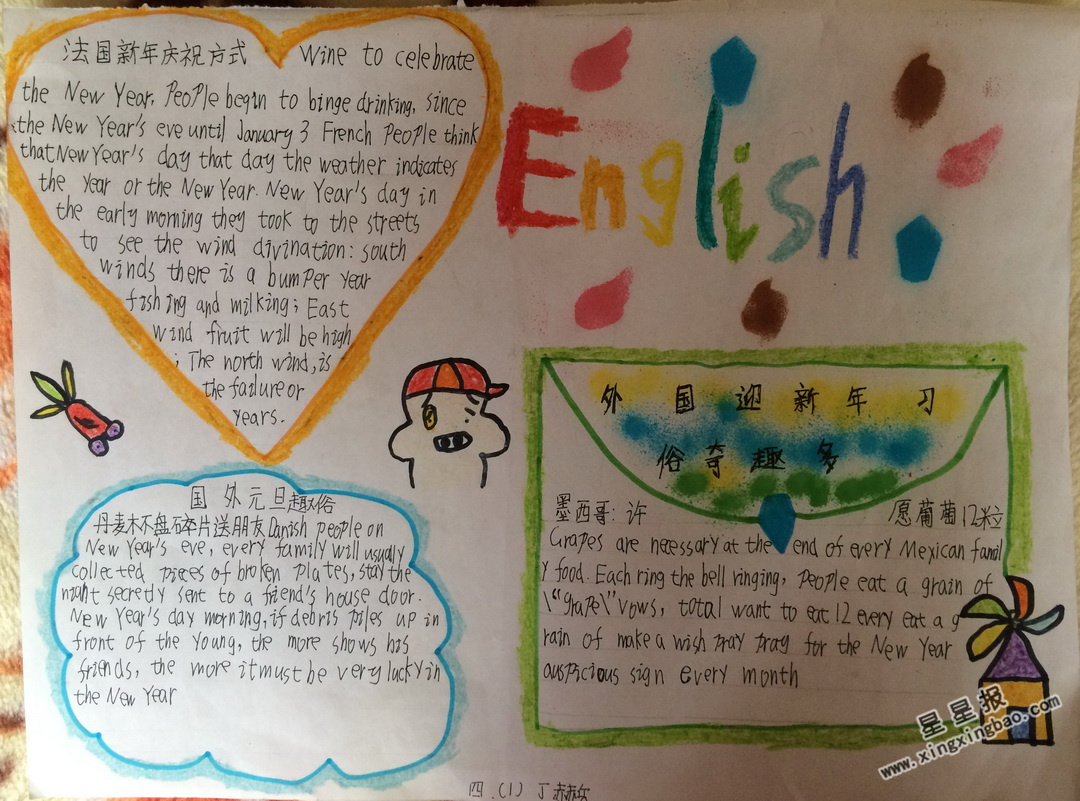 法国新年庆祝方式 Wine to celebrate
the New Year, People begin to binge drinking, since
the New Year's eve until January 3 French People think
that New Year's day that day the weather indicates
the Year or the New Year. New Year's day in
the early morning they took to the streets
to see the wind divination: south
winds there is a bumper year
fishing and milking; East
wind fruit will be high
; The north wind, is
the failure or
years.
English
国外元旦趣俗
丹麦杯盘碎片送朋友 Danish people on
New Year's eve, every family will usually
collected pieces of broken plates, stay the
night secretly sent to a friend's house door.
New Year's day morning, if debris piles up in
front of the young, the more shows his
friends, the more it must be very lucky in
the New Year
外国迎新年习
俗奇趣多
墨西哥: 许 愿葡萄12粒
Grapes are necessary at the end of every Mexican famil
y food. Each ring the bell ringing, people eat a grain of
\"grape\" vows, total want to eat 12 every eat a g
rain of make a wish pray pray for the New Year
auspicious sign every month
四.(1) 丁
星星报
www.xingxingbao.com